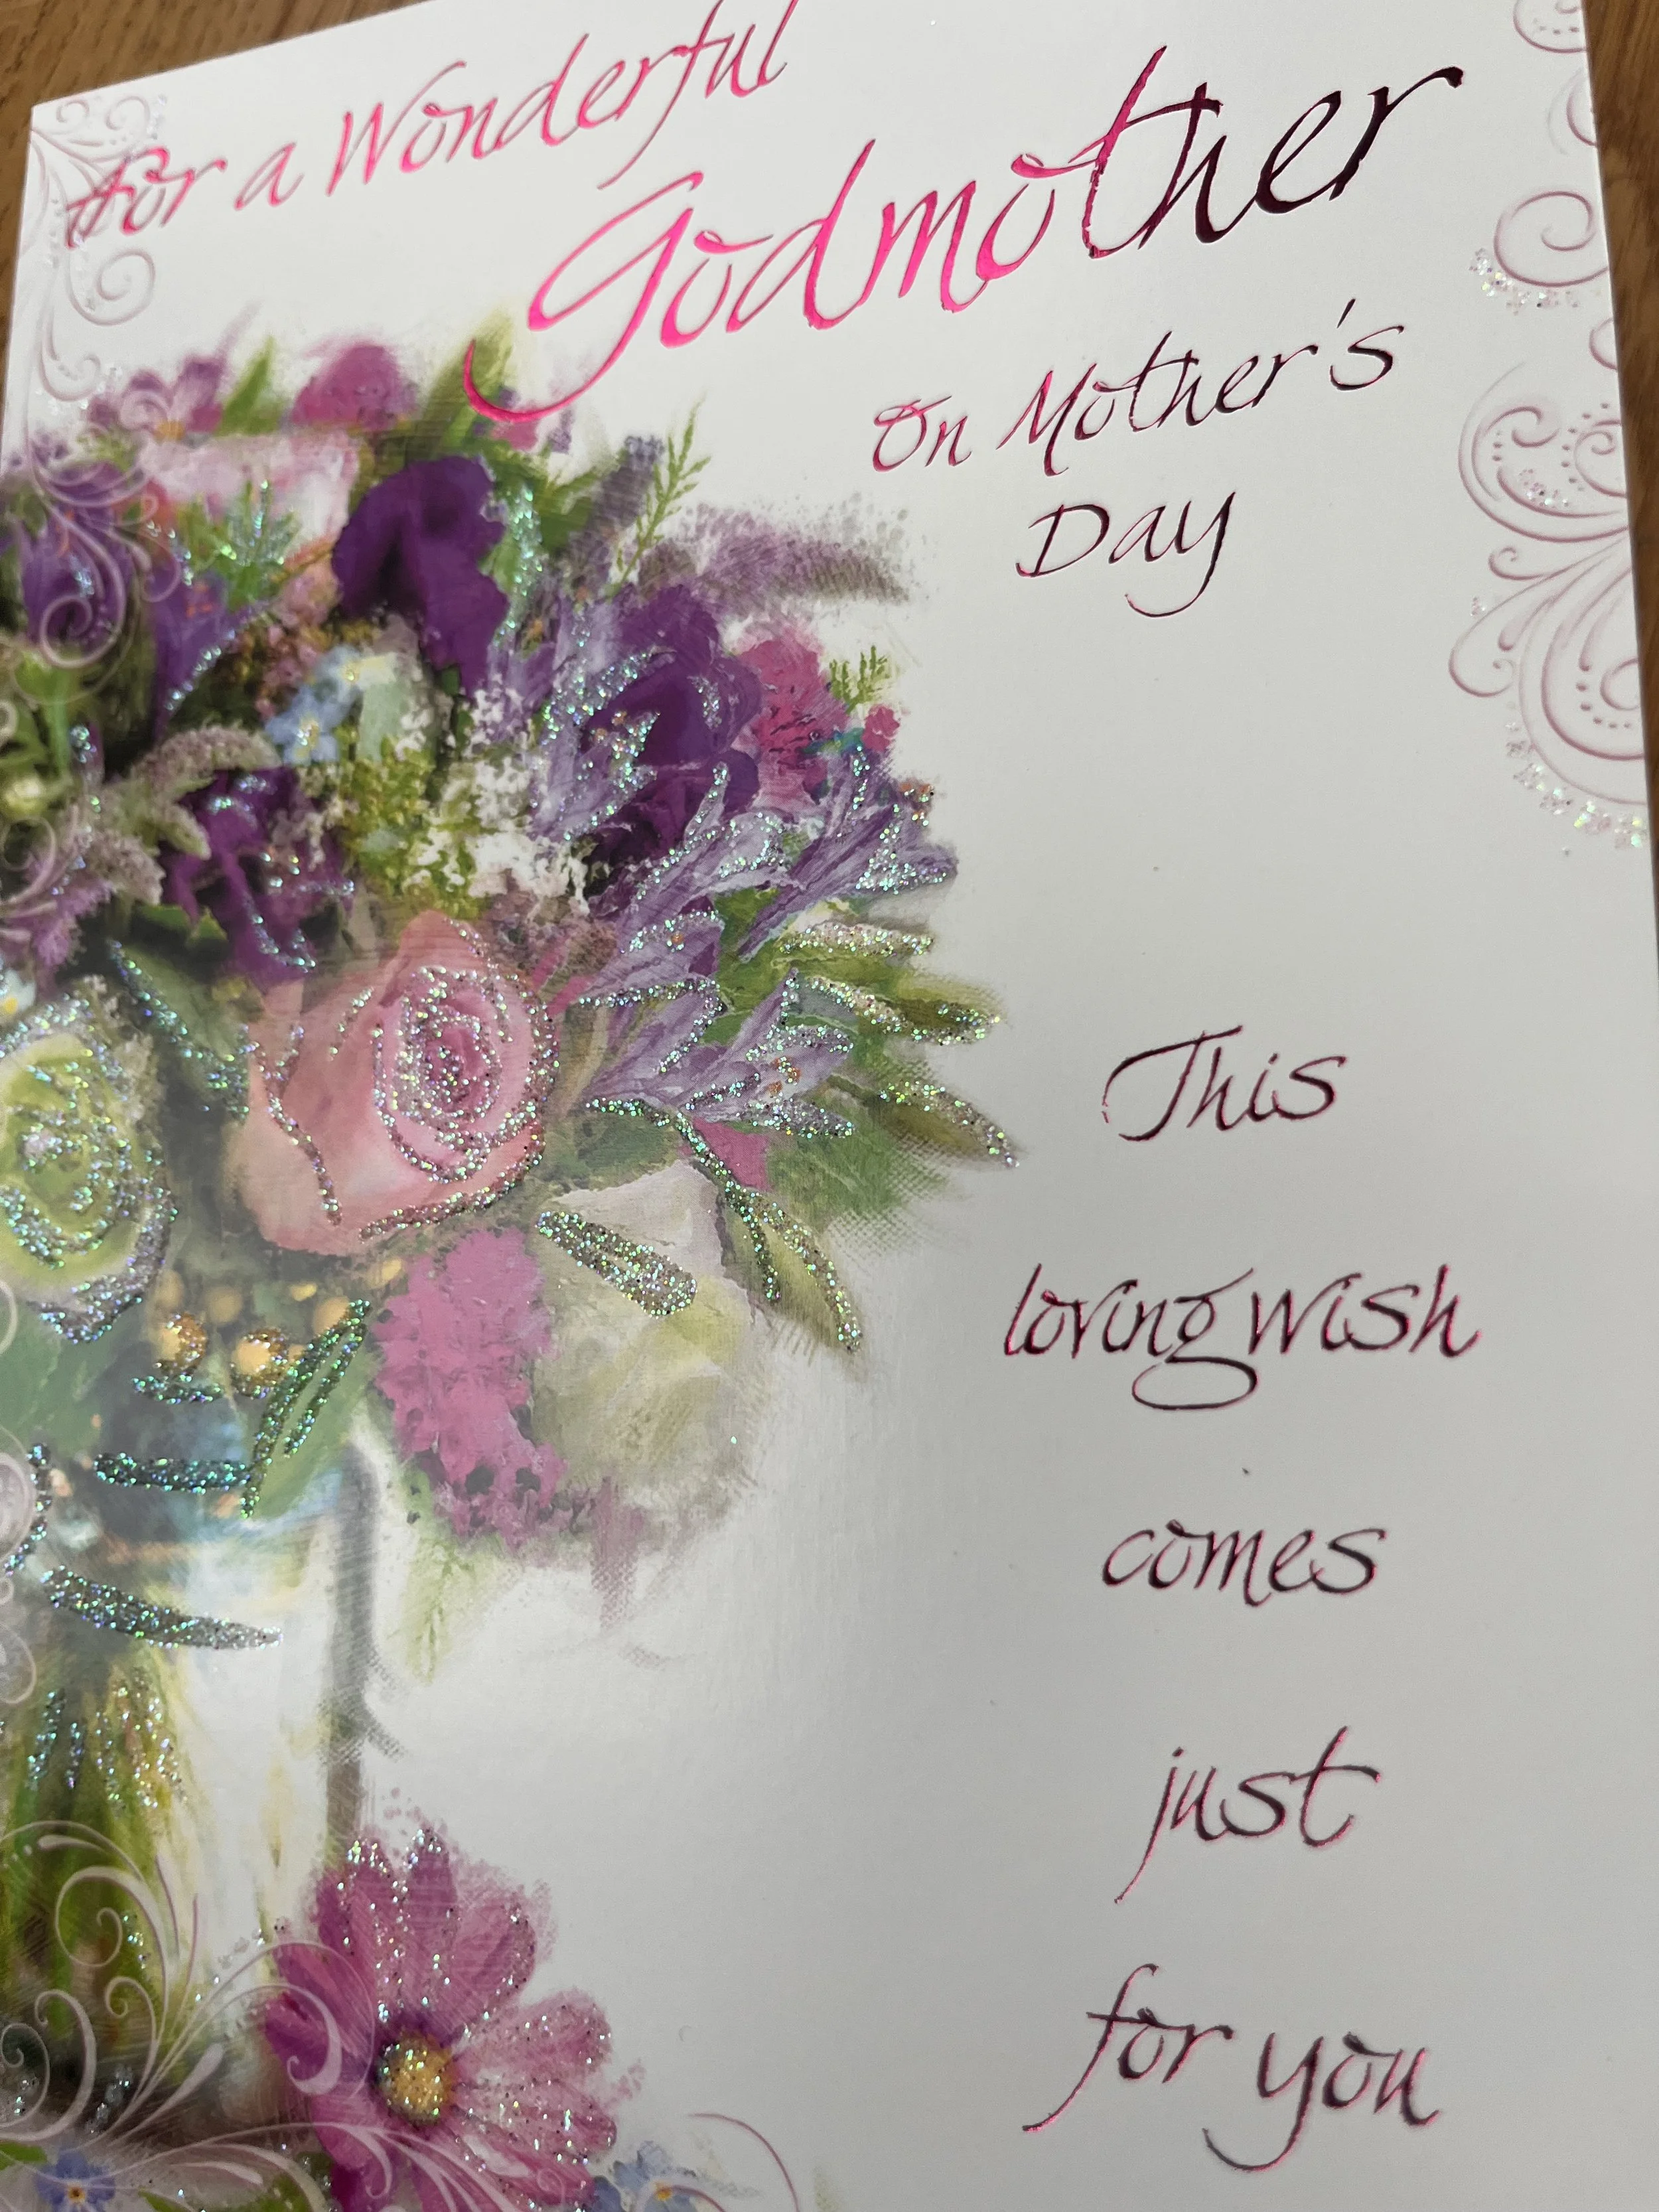 For a Wonderful
Godmother
On Mother's
Day
This
loving wish
comes
just
for you